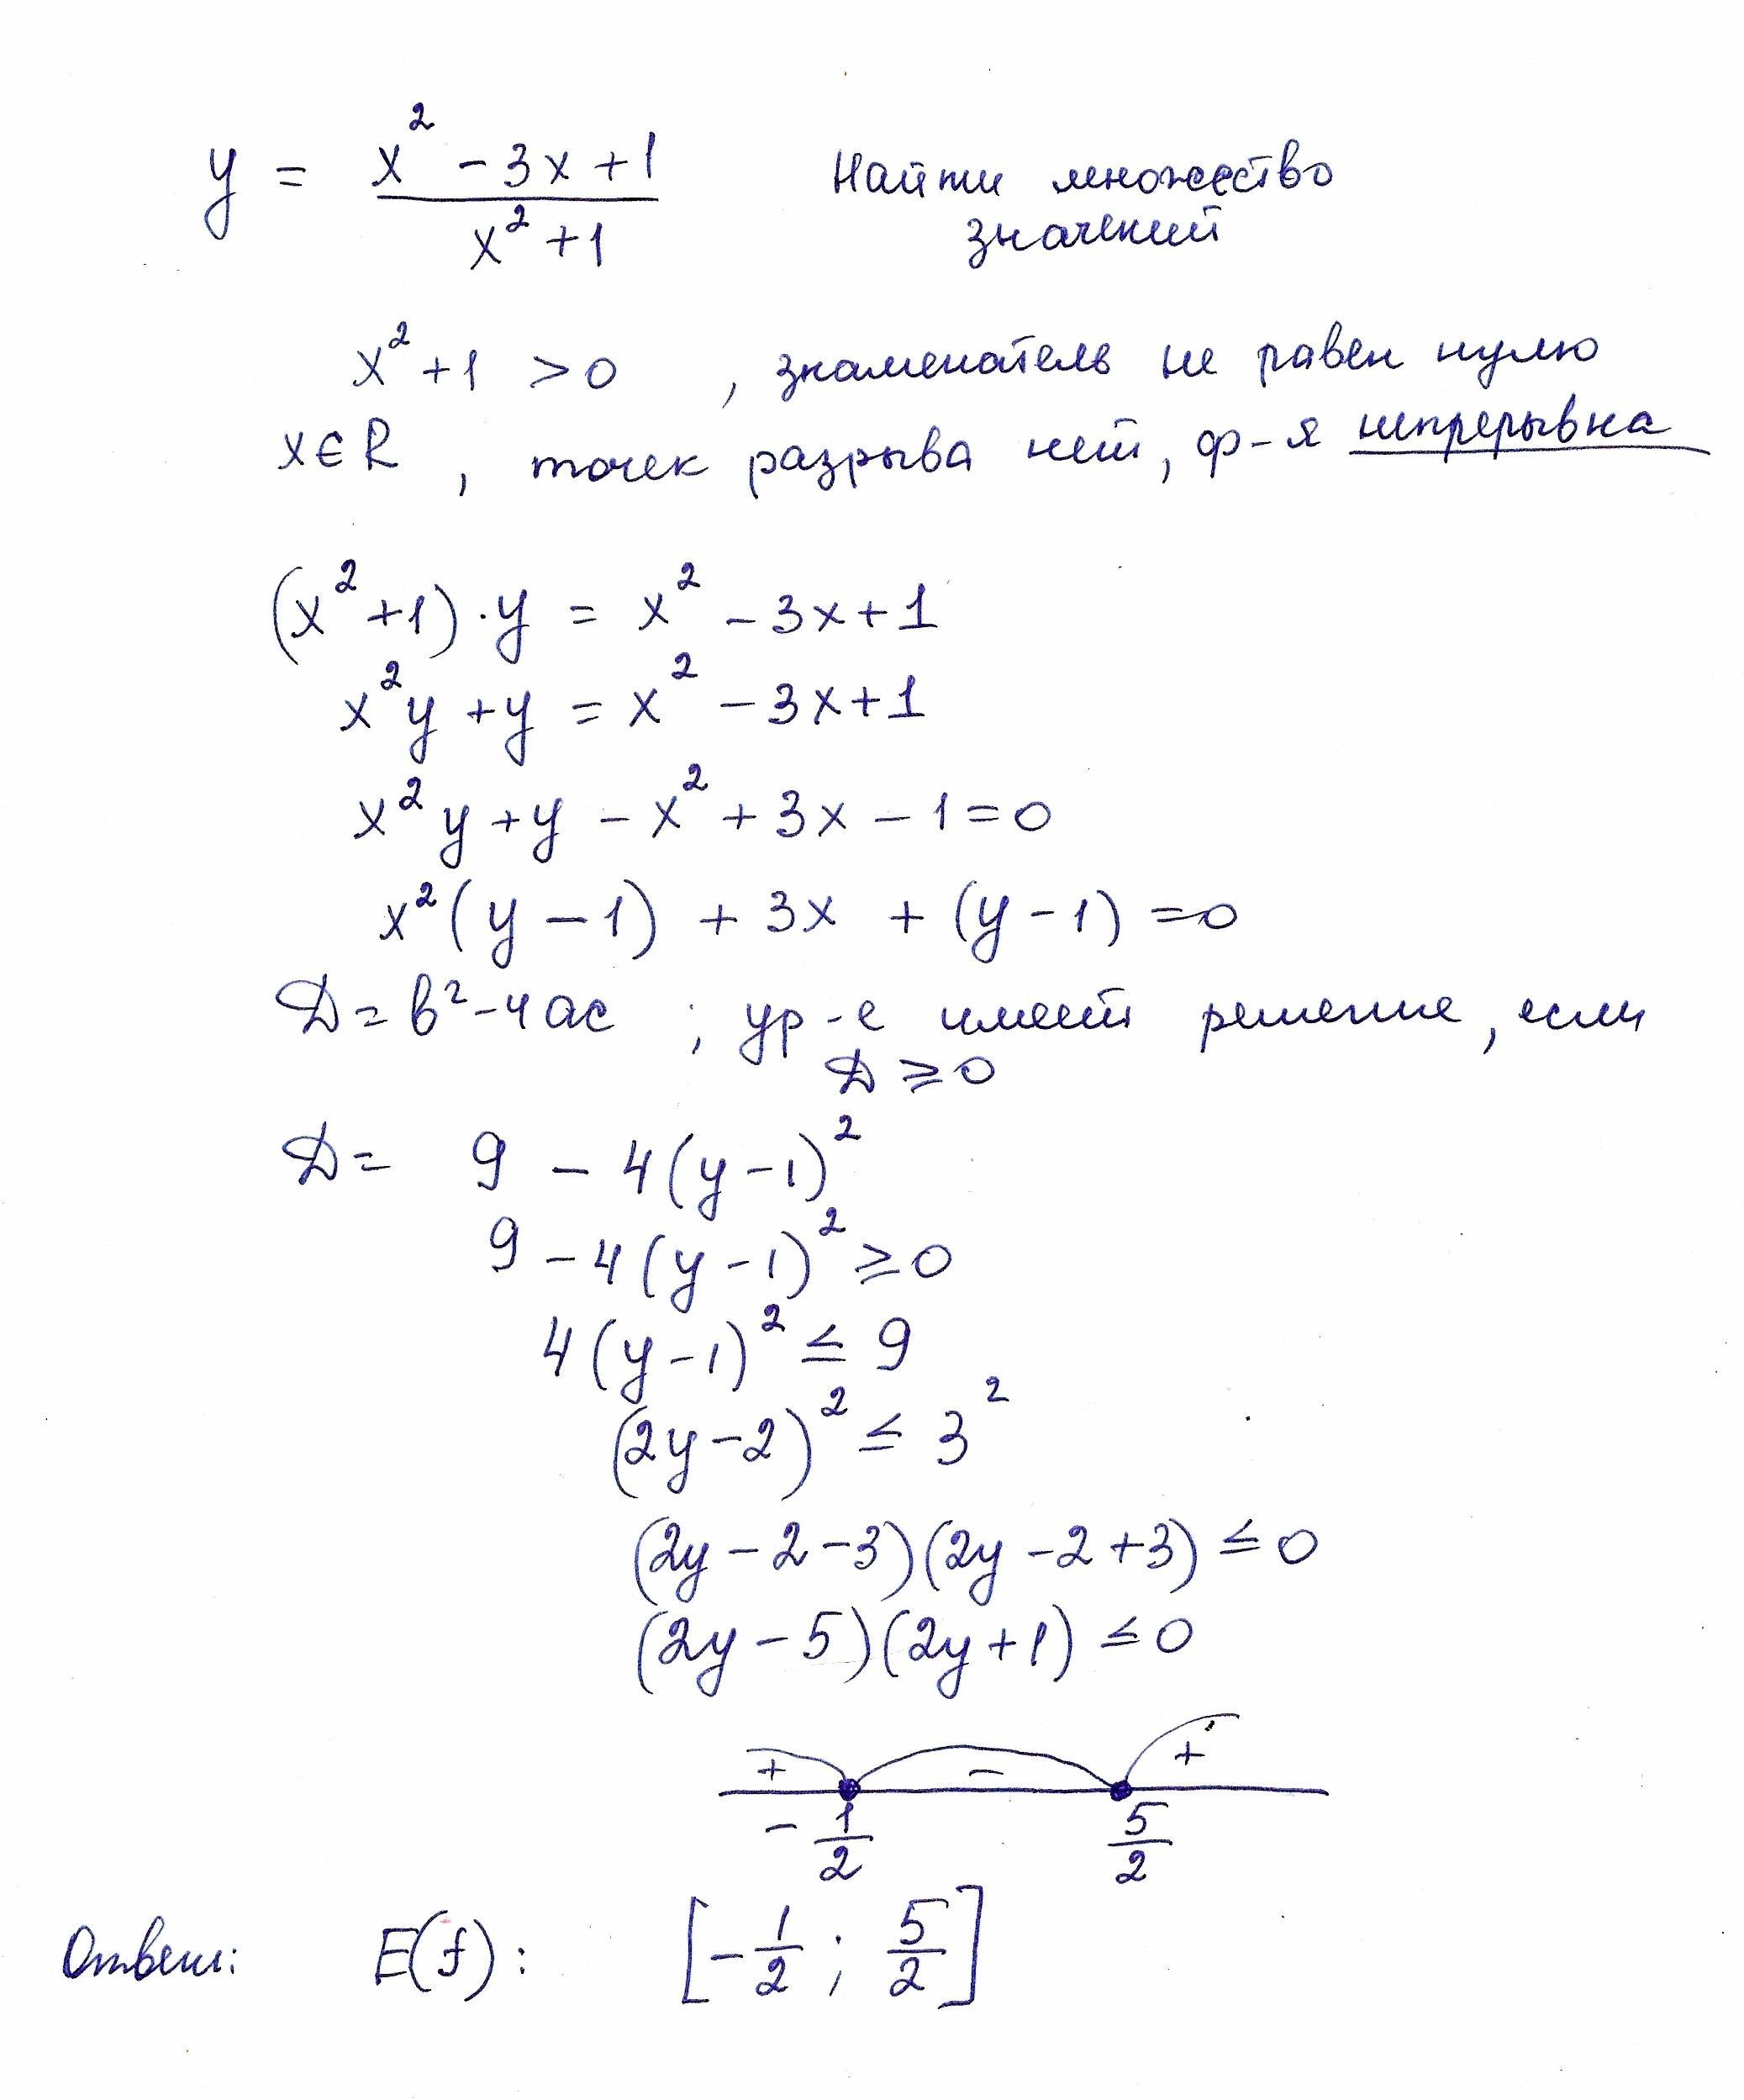 y = (x² - 3x + 1)/(x² + 1) Найти множество
значений
x² + 1 > 0 , знаменатель не равен нулю
x ∈ R , точек разрыва нет, ф-я непрерывна
(x² + 1) · y = x² - 3x + 1
x²y + y = x² - 3x + 1
x²y + y - x² + 3x - 1 = 0
x²(y - 1) + 3x + (y - 1) = 0
D = b² - 4ac ; ур-е имеет решение, если
D ≥ 0
D = 9 - 4(y - 1)²
9 - 4(y - 1)² ≥ 0
4(y - 1)² ≤ 9
(2y - 2)² ≤ 3²
(2y - 2 - 3)(2y - 2 + 3) ≤ 0
(2y - 5)(2y + 1) ≤ 0
+ - +
-1/2 5/2
Ответ: E(f): [-1/2 ; 5/2]